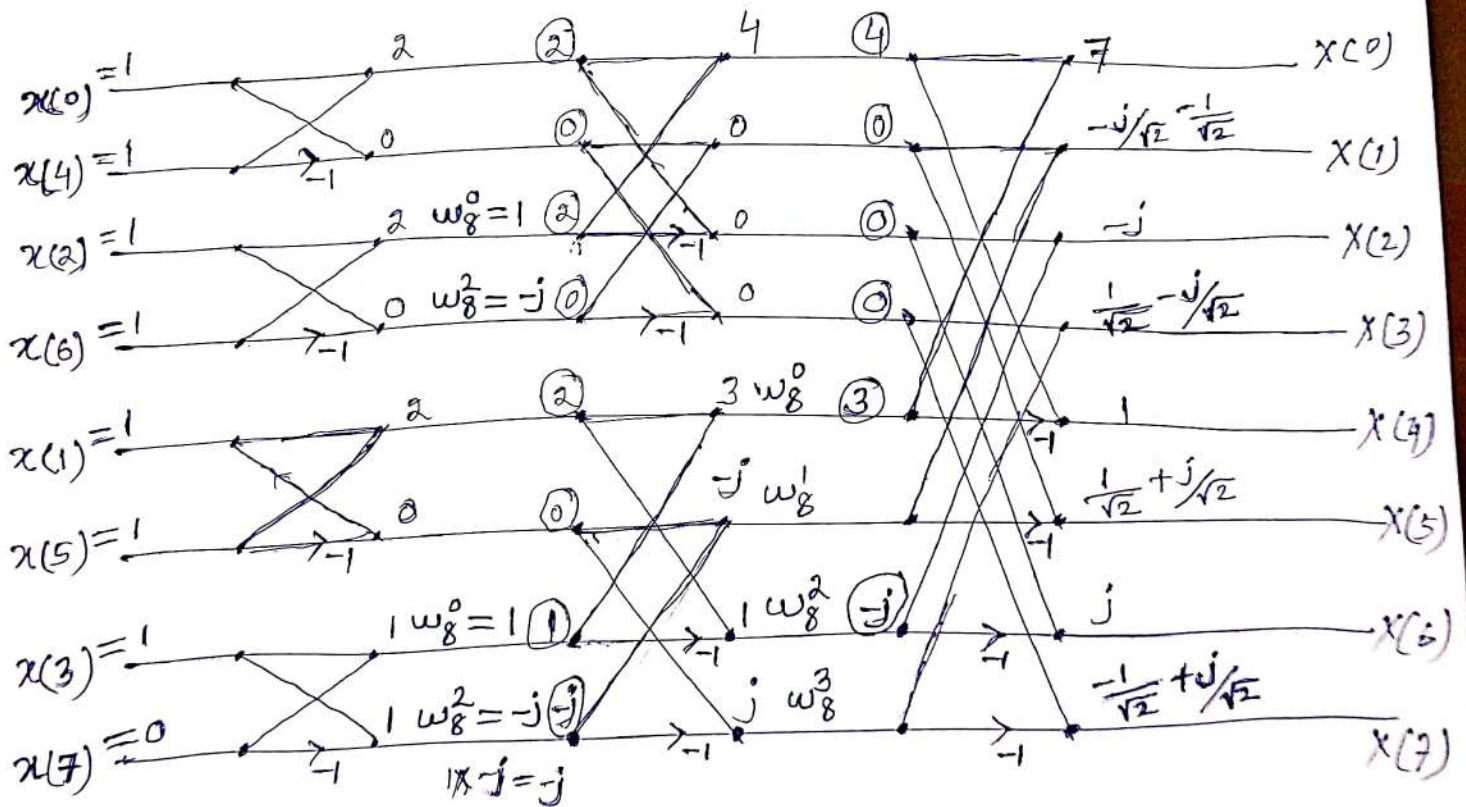 x(0)=1 2 ② 4 ④ 7 X(0)
x(4)=1 -1 0 ⓪ 0 ⓪ -j/√2 -1/√2 X(1)
x(2)=1 2 w₈⁰=1 ② -1 0 ⓪ -j X(2)
x(6)=1 -1 0 w₈²=-j ⓪ -1 0 ⓪ 1/√2 -j/√2 X(3)
x(1)=1 2 ② 3 w₈⁰ ③ -1 1 X(4)
x(5)=1 -1 0 ⓪ -j w₈¹ -1 1/√2 +j/√2 X(5)
x(3)=1 1 w₈⁰=1 ① -1 1 w₈² (-j) -1 j X(6)
x(7)=0 -1 1 w₈²=-j (-j) -1 j w₈³ -1 -1/√2 +j/√2 X(7)
1x -j=-j